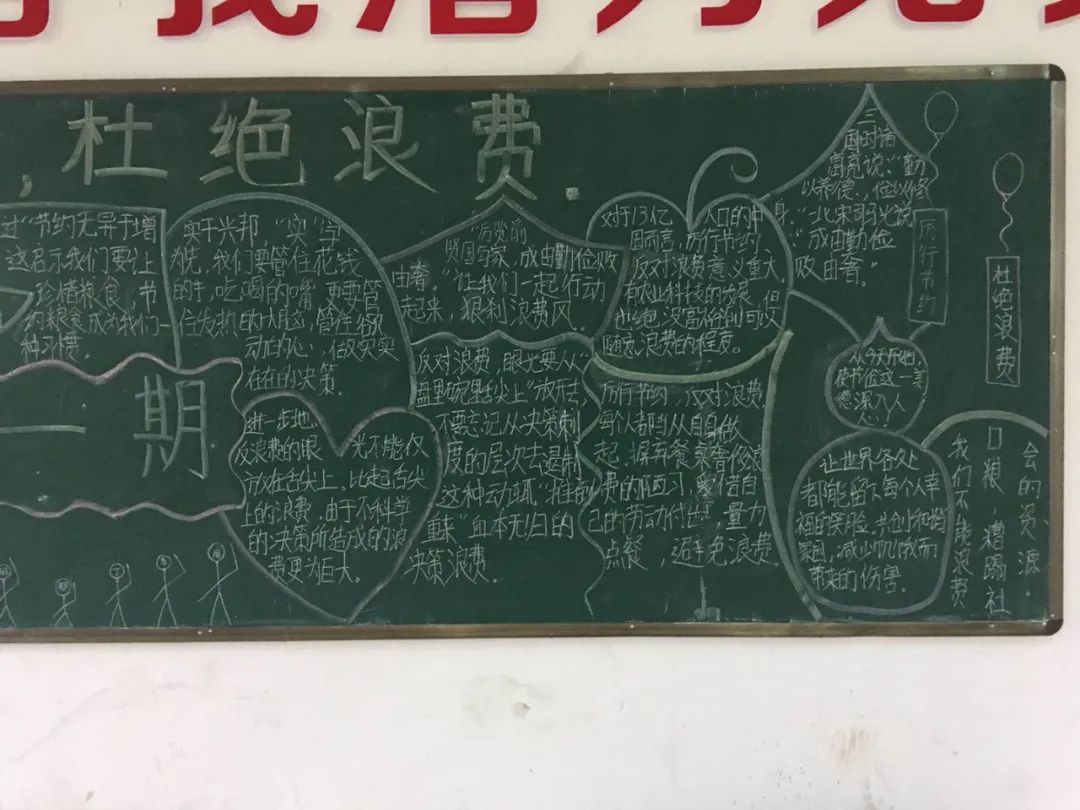 ，杜绝浪费
过“节约无异于增
这启示我们要让
珍惜粮食，节
约粮食成为我们一
种习惯。
一期
实干兴邦，“实”当
为先，我们要管住花钱
的手，吃喝的嘴，更要管
住发热的大脑，管住
动的心，做实实
在在的决策。
进一步地，
反浪费的眼光不能仅
放在舌尖上。比起舌尖
上的浪费，由于不科学
的决策所造成的浪
费更为巨大。
“历览前
贤国与家，成由勤俭败
由奢。”让我们一起行动
起来，狠刹浪费风。
反对浪费，眼光要从“
盘里碗里舌尖上”放开去，
不要忘记从决策制
度的层次去遏制
这种动辄“推倒
重来”血本无归的
决策浪费。
对于13亿人口的中
国而言，厉行节约、
反对浪费意义重大。
有农业科技的发展，但
也绝没富裕到可以
随意浪费的程度。
厉行节约，反对浪费
每个人都当从自身做
起。摒弃餐桌奢侈浪
费的陋习，爱惜自
己的劳动付出，量力
点餐，避免浪费
三
国时诸
葛亮说：“勤
以养德，俭以修
身。”北宋司马光说
“成由勤俭
败由奢。”
厉行节约
杜绝浪费
从今天开始
使节俭这一美
德深入人
心！
让世界各处
都能留下每个人幸
福的笑脸，共创和谐
家园，减少饥饿而
带来的伤害。
我们不能浪费
口粮，糟蹋社
会的资源。